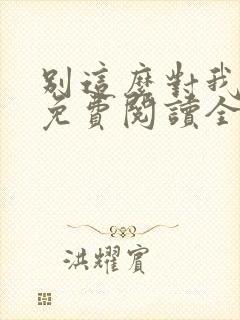 別這麼對我
免費閱讀全
洪耀賓